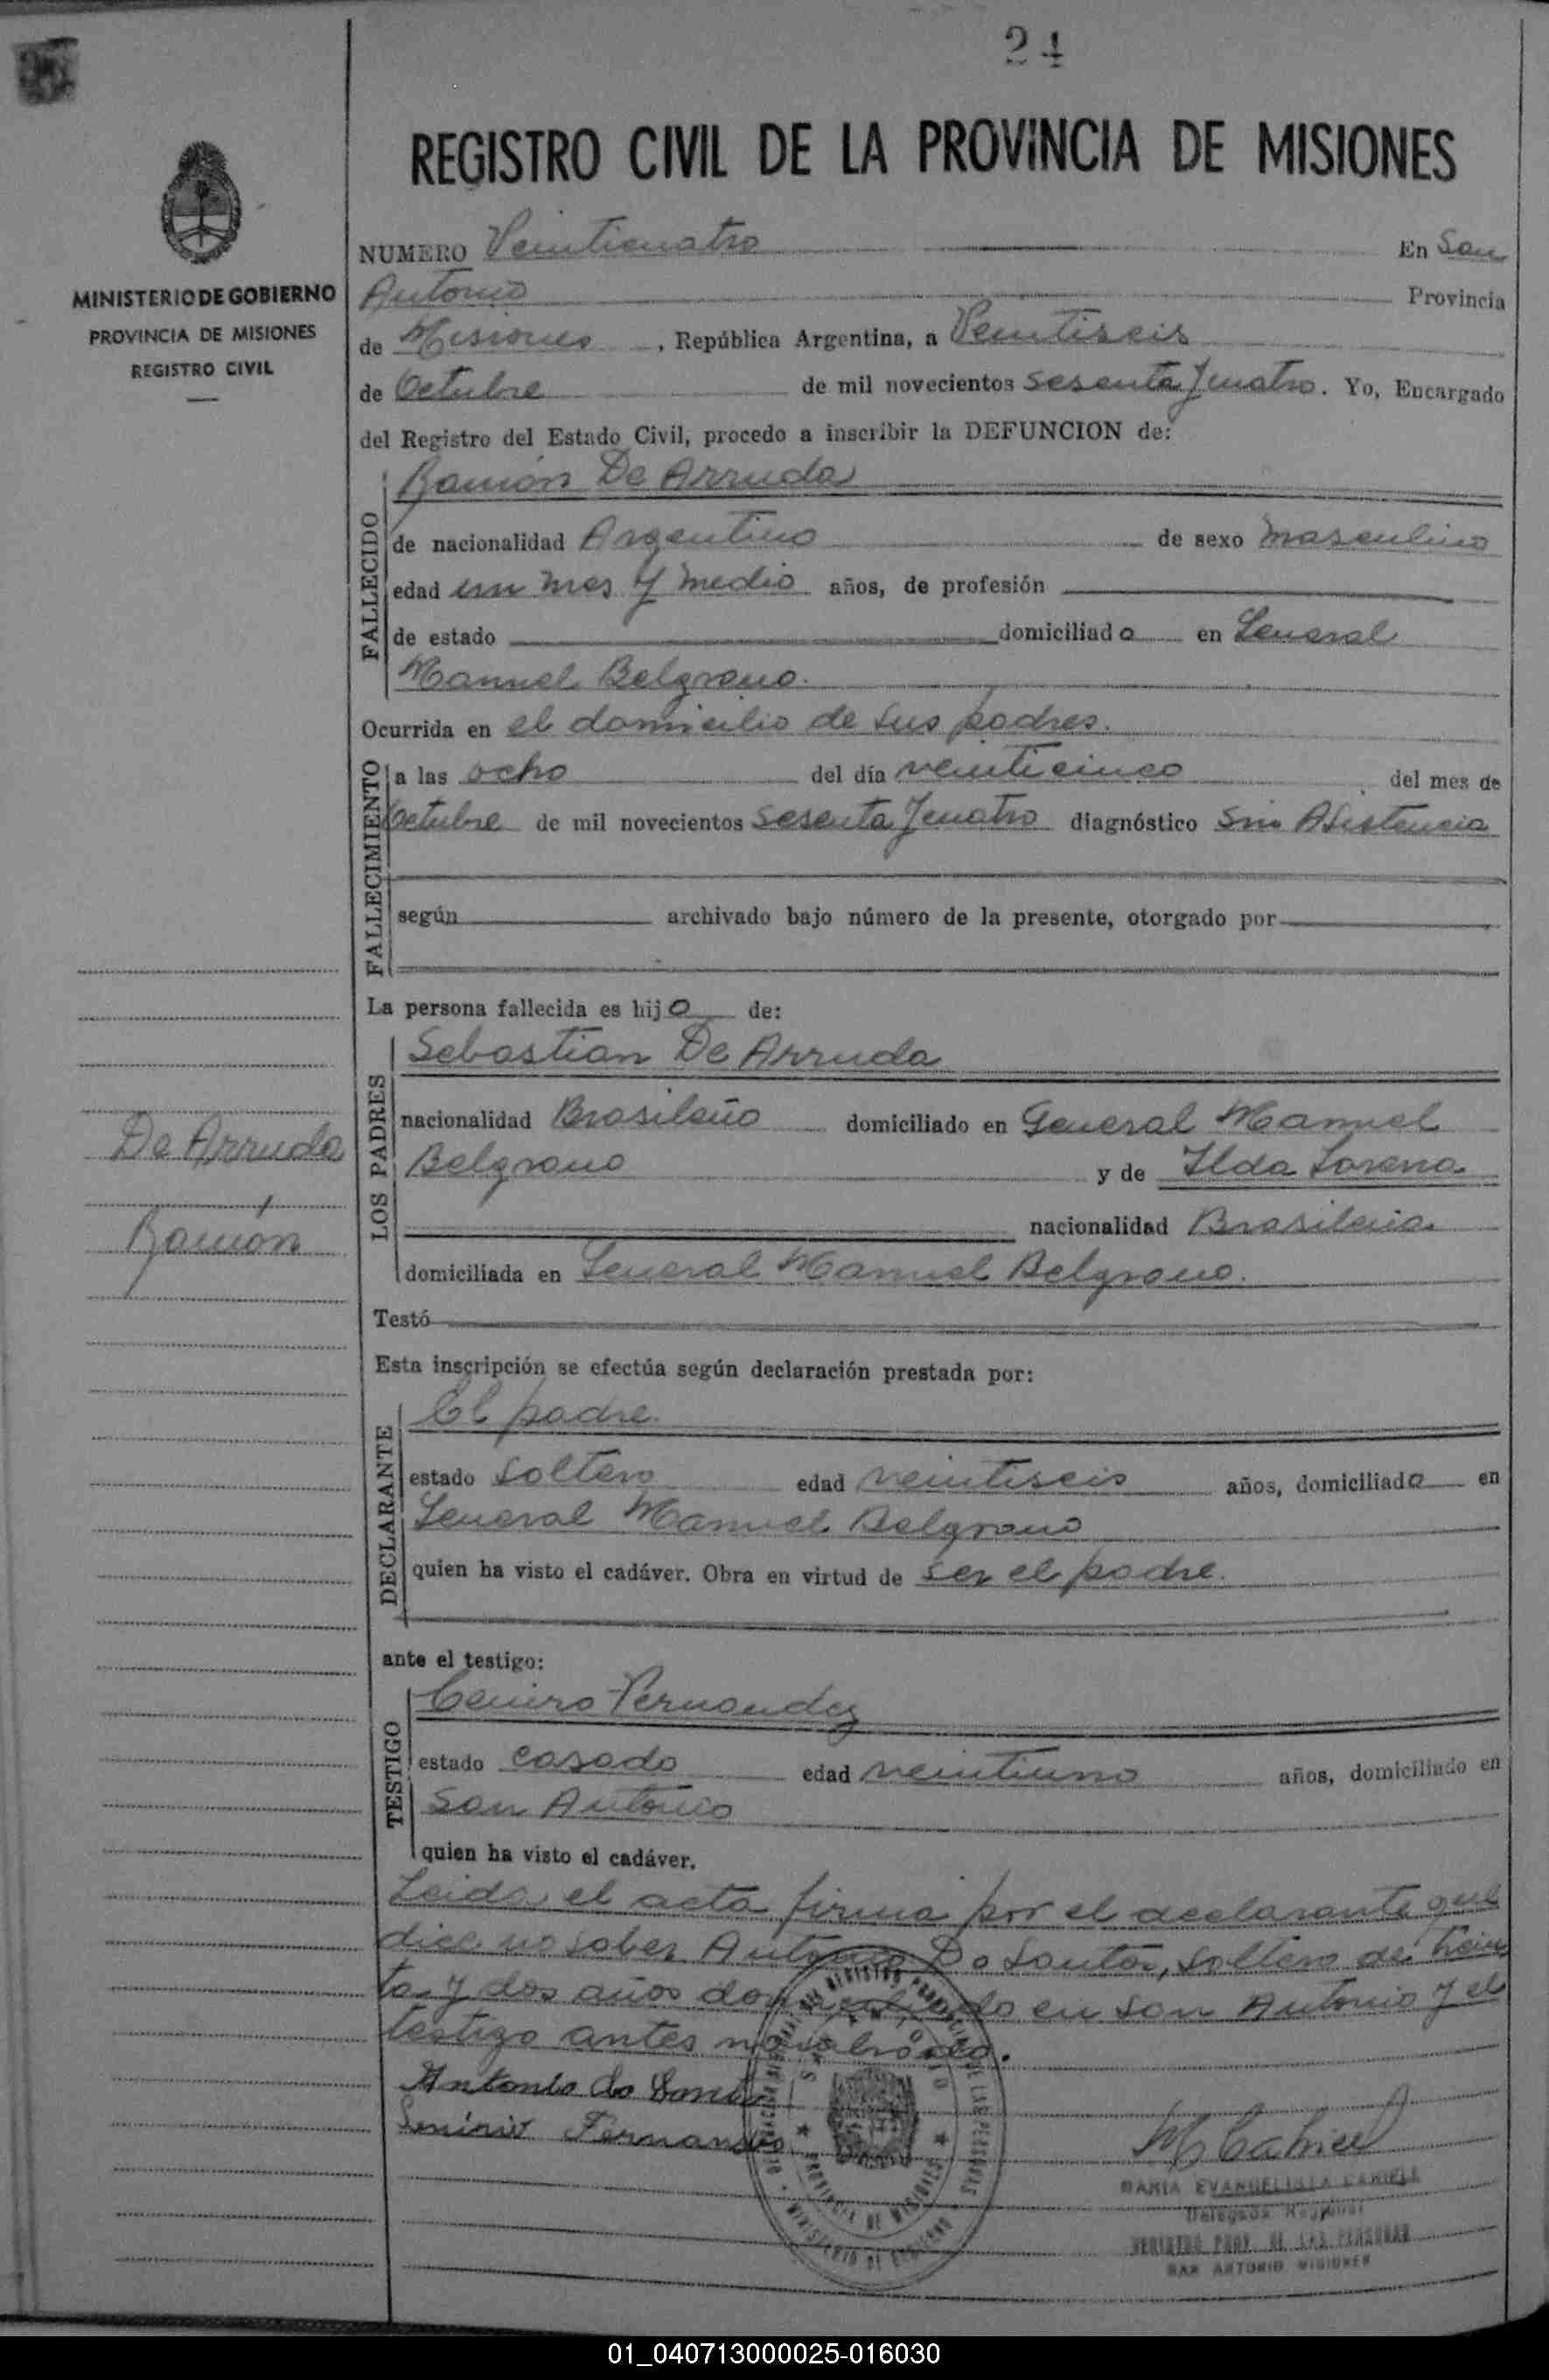 24
REGISTRO CIVIL DE LA PROVINCIA DE MISIONES
MINISTERIO DE GOBIERNO
PROVINCIA DE MISIONES
REGISTRO CIVIL
NUMERO Veinticuatro En San
Antonio Provincia
de Misiones, República Argentina, a Veintiseis
de Octubre de mil novecientos sesenta y cuatro. Yo, Encargado
del Registro del Estado Civil, procedo a inscribir la DEFUNCION de:
Ramón De Arruda
FALLECIDO
de nacionalidad Argentino de sexo masculino
edad un mes y medio años, de profesión
de estado domiciliado en General
Manuel Belgrano.
Ocurrida en el domicilio de sus padres.
FALLECIMIENTO
a las ocho del día veinticinco del mes de
Octubre de mil novecientos sesenta y cuatro diagnóstico Sin Asistencia
según archivado bajo número de la presente, otorgado por
La persona fallecida es hijo de:
LOS PADRES
Sebastian De Arruda
nacionalidad Brasileño domiciliado en General Manuel
Belgrano y de Ilda Lorena
nacionalidad Brasileña
domiciliada en General Manuel Belgrano.
De Arruda
Ramón
Testó
Esta inscripción se efectúa según declaración prestada por:
DECLARANTE
El padre.
estado soltero edad veintiseis años, domiciliado en
General Manuel Belgrano
quien ha visto el cadáver. Obra en virtud de ser el padre.
ante el testigo:
TESTIGO
Fernandez
estado casado edad veintiuno años, domiciliado en
San Antonio
quien ha visto el cadáver.
Leida el acta firma por el declarante que
dice no saber Antonio Do Santos, soltero de trein
ta y dos años domiciliado en San Antonio y el
testigo antes nombrado.
Antonio do
Fernandes
M Cabriel
MARIA EVANGELISTA
Delegada Regional
REGISTRO PROV. DE LAS PERSONAS
SAN ANTONIO MISIONES
PROVINCIA DE MISIONES
MINISTERIO DE GOBIERNO
01_040713000025-016030